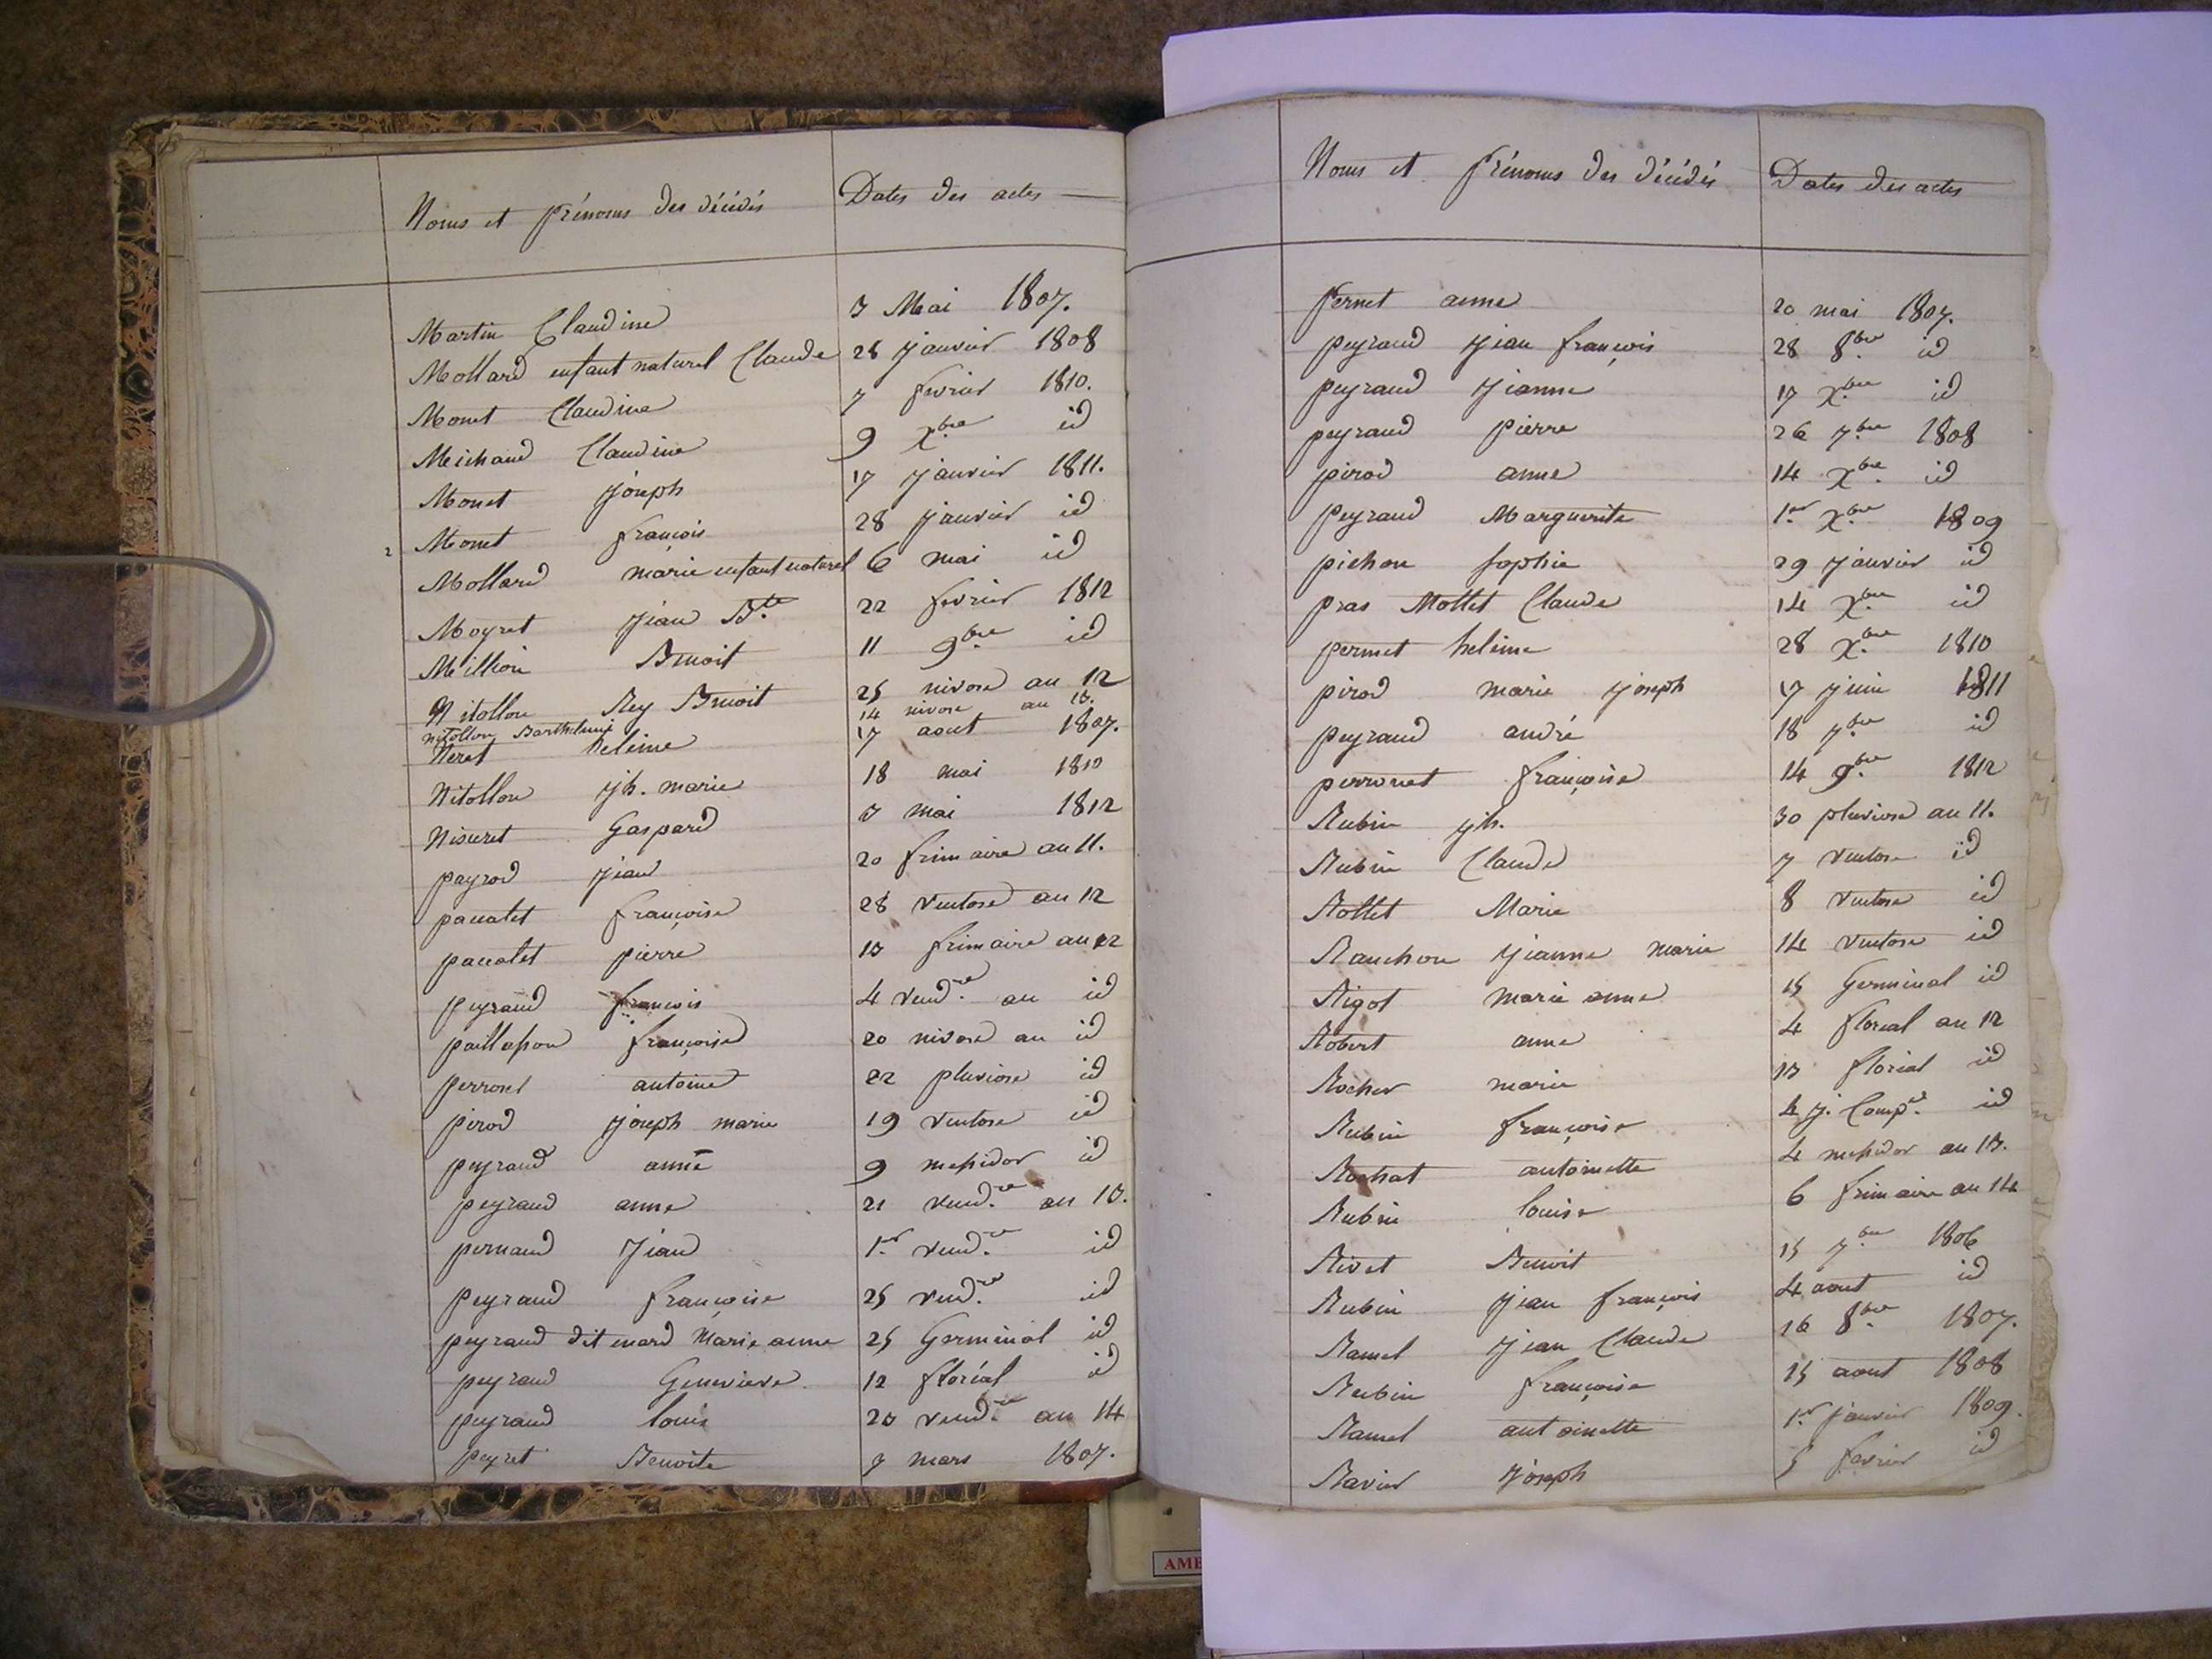 Noms et prénoms des décédés Dates des actes
Martin Claudine 3 Mai 1807.
Mollard enfant naturel Claude 28 janvier 1808
Monet Claudine 7 fevrier 1810.
Meichaud Claudine 9 Xbre id
Monet joseph 17 janvier 1811.
Monet françois 28 janvier id
Mollard marie enfant naturel 6 mai id
Moyret jean Bte 22 fevrier 1812
Million Benoit 11 9bre id
Nitollon Rey Benoit 25 nivose an 12
Nitollon Barthelemi 14 nivose an 13.
Neret helene 17 aout 1807.
Nitollon jh. marie 18 mai 1810
Niseret Gaspard 3 mai 1812
payrod jean 20 frimaire an 11.
pacalet françoise 28 ventose an 12
pacalet pierre 13 frimaire an 12
peyraud françois 4 vend.re an id
paillasson françoise 20 nivose an id
perronet antoine 22 pluviose id
pirod joseph marie 19 ventose id
peyraud anne 9 messidor id
peyraud anne 21 vend.re an 13.
pernaud jean 1.er vend.re id
peyraud françoise 25 vend.re id
peyraud dit mard Marie anne 25 Germinal id
peyraud Genevieve 12 floréal id
peyraud louis 20 vend.re an 14
peyret Benoite 9 mars 1807.
Noms et prénoms des décédés Dates des actes
pernet anne 20 mai 1807.
peyraud jean françois 28 8bre id
peyraud jeanne 17 Xbre id
peyraud pierre 26 7bre 1808
pirod anne 14 Xbre id
peyraud Marguerite 1.er Xbre 1809
pichon sophie 29 janvier id
pras Mollet Claude 14 Xbre id
pernet helene 28 Xbre 1810
pirod marie joseph 17 juin 1811
peyraud andré 18 7bre id
perronet françoise 14 9bre 1812
Rubin jh. 30 pluviose an 11.
Rubin Claude 7 ventose id
Rollet Marie 8 ventose id
Ranchon jeanne marie 14 ventose id
Rigot marie anne 15 Germinal id
Robert anne 4 floreal an 12
Rocher marie 13 floreal id
Rubin françoise 4 j. Comp.re id
Rochat antoinette 4 messidor an 13.
Rubin louise 6 frimaire an 14
Rivet Benoit 15 7bre 1806
Rubin jean françois 4 aout id
Ramel jean Claude 16 8bre 1807.
Rubin françoise 15 aout 1808
Ramel antoinette 1.er janvier 1809.
Ravier joseph 5 fevrier id
AME